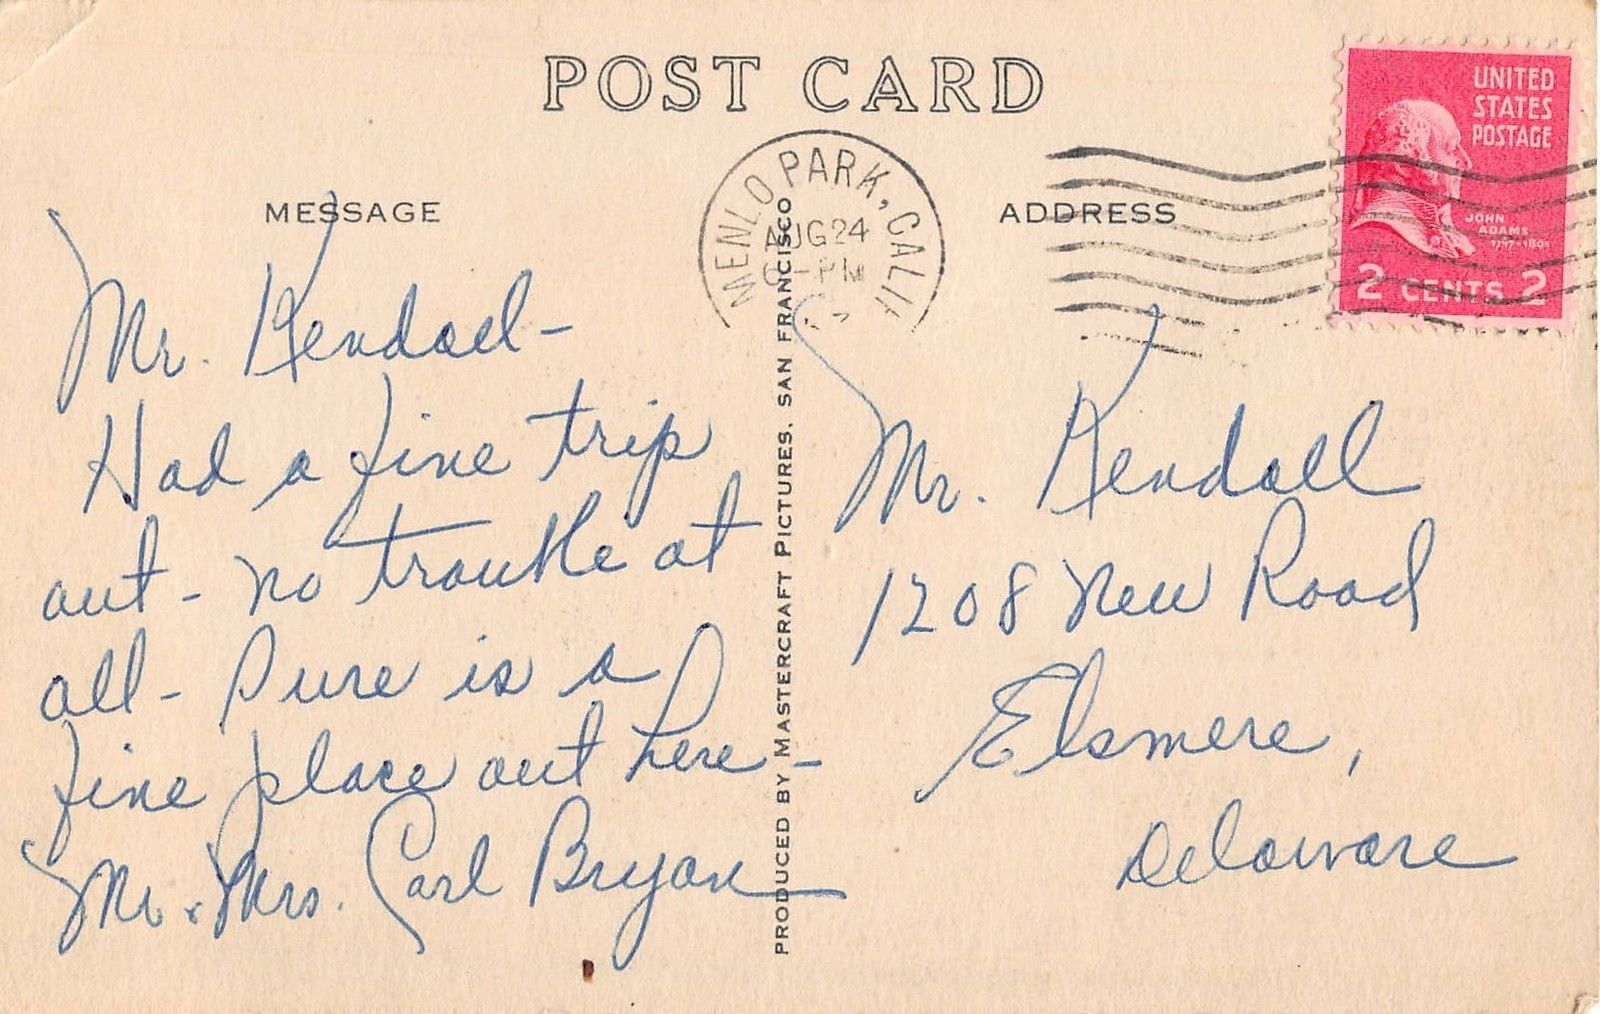 POST CARD
MESSAGE
ADDRESS
MENLO PARK, CALIF
AUG 24
PM
UNITED
STATES
POSTAGE
JOHN
ADAMS
1797-1801
2 CENTS 2
Mr. Kendall-
Had a fine trip
out - no trouble at
all - Sure is a
fine place out here -
Mr & Mrs. Carl Bryan
PRODUCED BY MASTERCRAFT PICTURES. SAN FRANCISCO
Mr. Kendall
1208 New Road
Elsmere,
Delaware